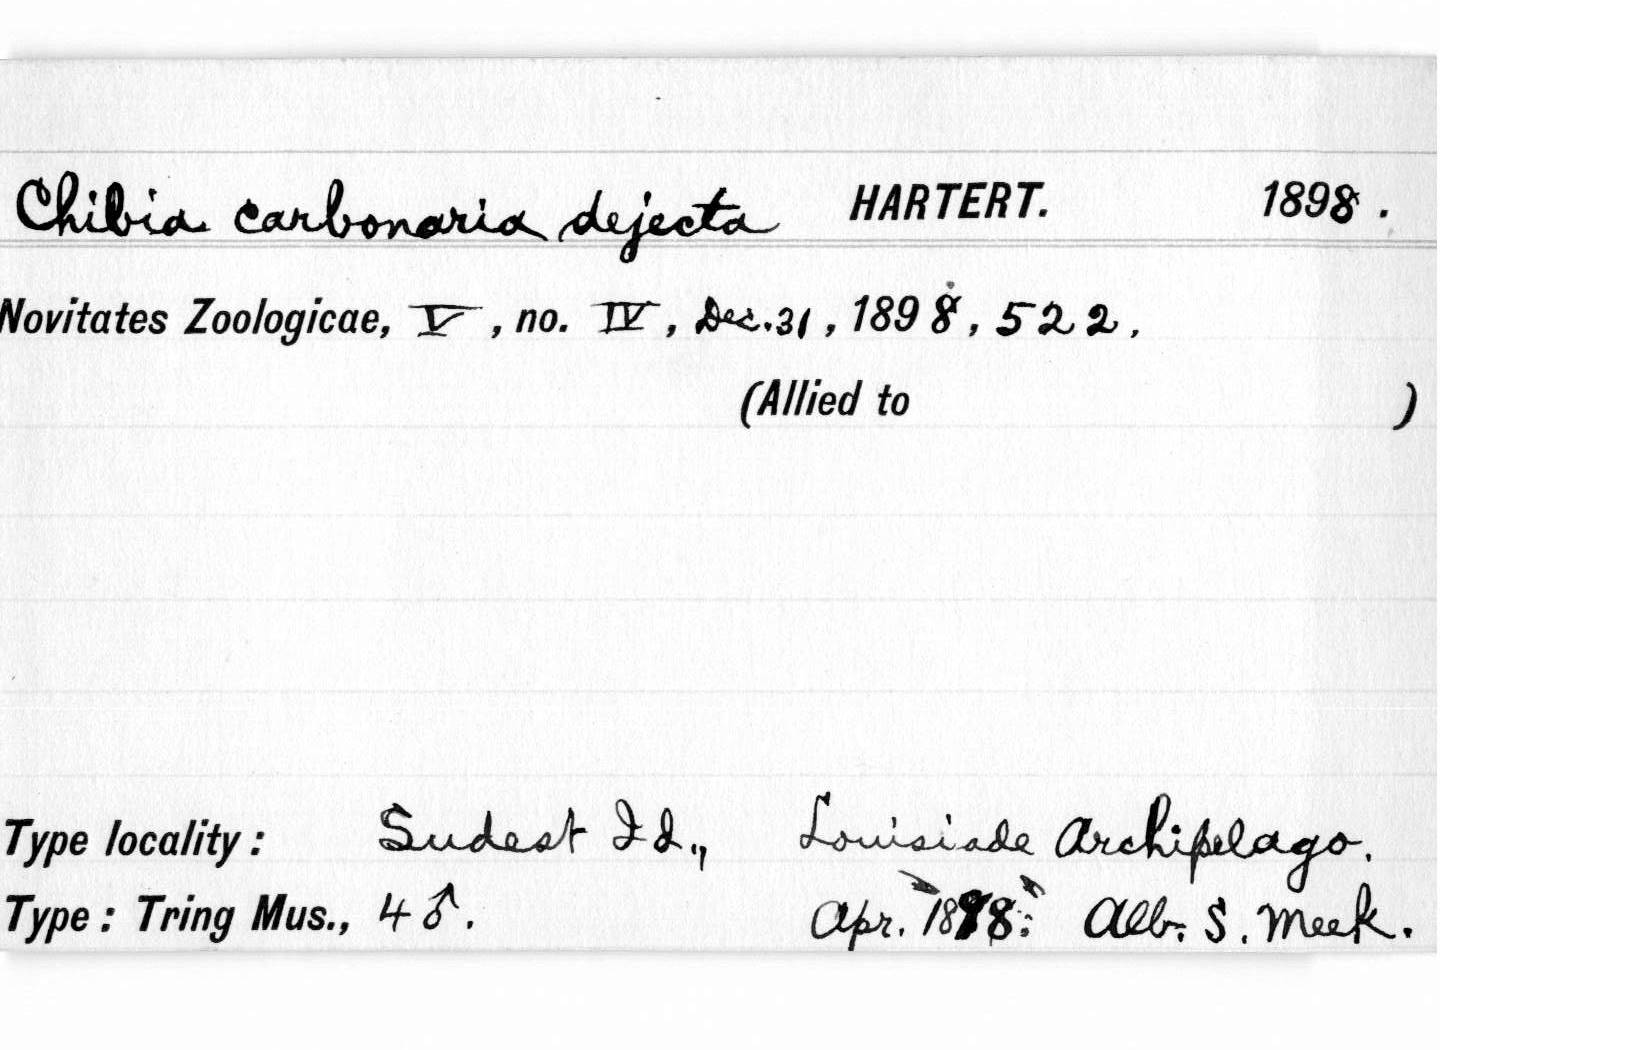 Chibia carbonaria dejecta HARTERT. 1898.
Novitates Zoologicae, V, no. IV, Dec. 31, 1898, 522.
(Allied to )
Type locality: Sudest Id., Louisiade Archipelago.
Type: Tring Mus., 4 ♂. Apr. 1898. Alb. S. Meek.